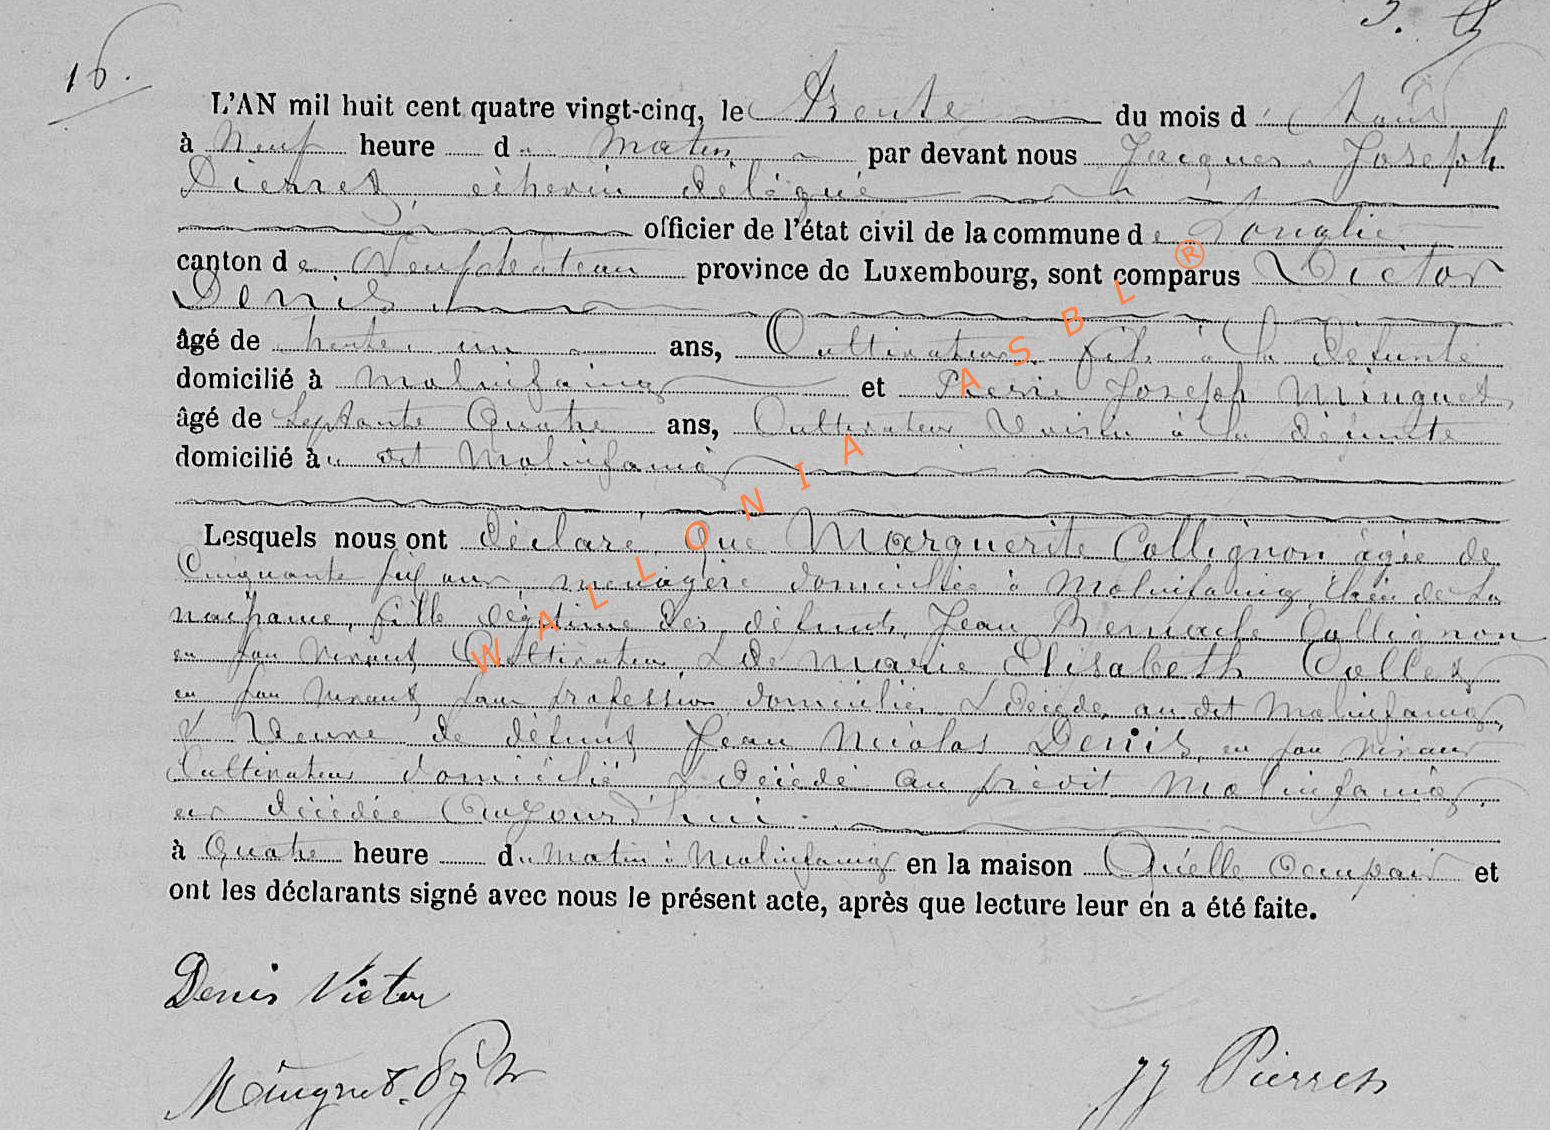 16.
L'AN mil huit cent quatre vingt-cinq, le trente du mois d'Août
à Neuf heure du matin par devant nous Jacques Joseph
Pierret, échevin délégué
officier de l'état civil de la commune de Longlier
canton de Neufchâteau province de Luxembourg, sont comparus Victor
Denis
âgé de trente un ans, Cultivateur fils à la défunte
domicilié à Molinfaing et Pierre Joseph Minguet
âgé de septante Quatre ans, Cultivateur Voisin à la défunte
domicilié au dit Molinfaing
Lesquels nous ont déclaré que Marguerite Collignon âgée de
Cinquante six ans ménagère domiciliée à Molinfaing, lieu de sa
naissance, fille légitime des défunts, Jean Remacle Collignon
en son vivant Cultivateur & de Marie Elisabeth Collet
en son vivant sans profession domiciliés & décédés au dit Molinfaing,
& Veuve de défunt Jean Nicolas Denis, en son vivant
Cultivateur domicilié & décédé au prédit Molinfaing,
est décédée Aujourd'hui
à Quatre heure du Matin à Molinfaing en la maison Qu'elle occupait et
ont les déclarants signé avec nous le présent acte, après que lecture leur en a été faite.
Denis Victor
Minguet
JJ Pierret
WALLONIA ASBL ®